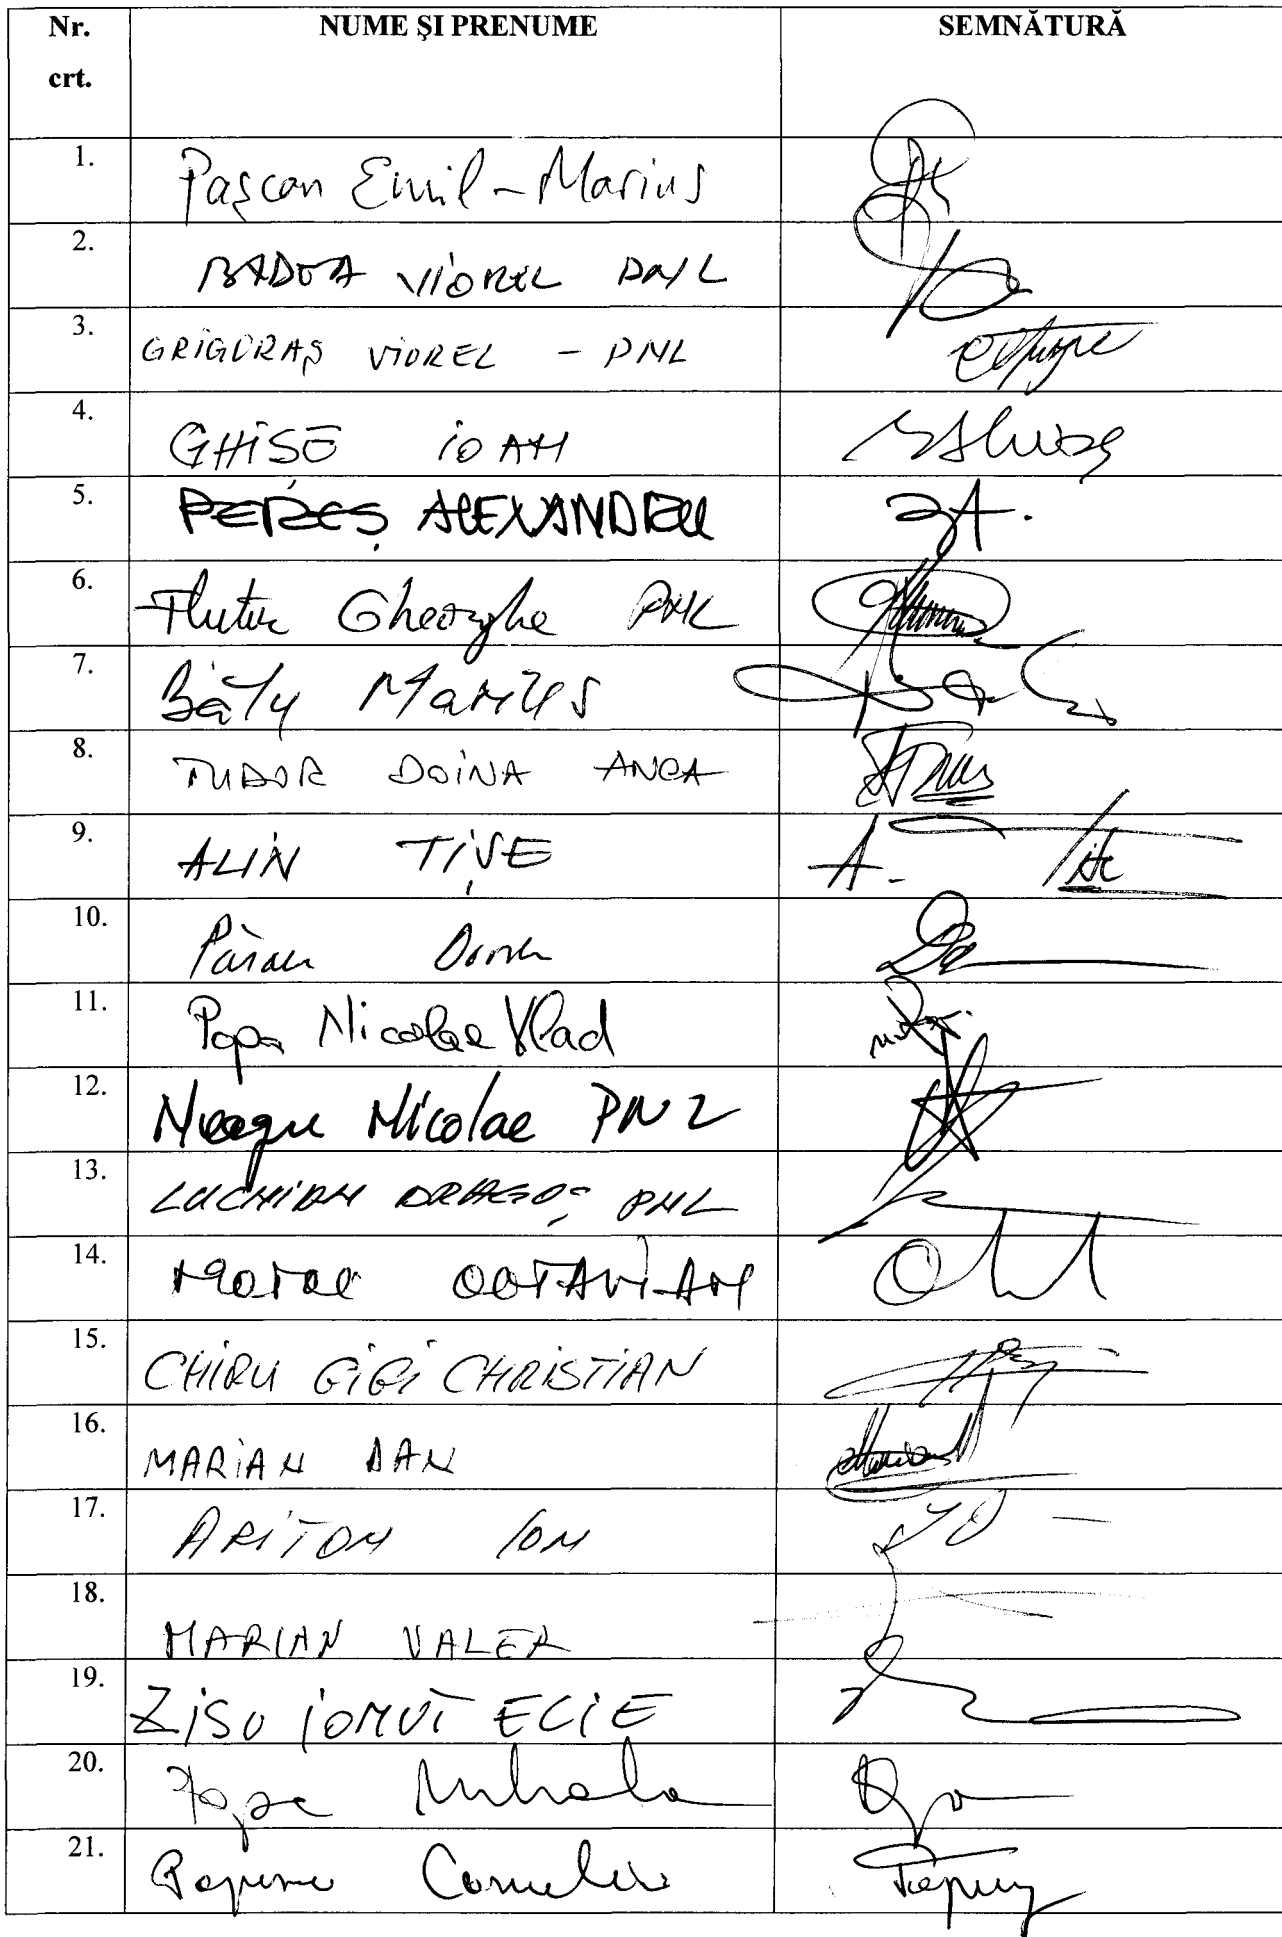 Nr. crt. NUME ŞI PRENUME SEMNĂTURĂ
1. Paşcan Emil-Marius
2. BADEA VIOREL PNL
3. GRIGORAŞ VIOREL - PNL
4. GHIŞE IOAN
5. PEREŞ ALEXANDRU
6. Flutur Gheorghe PNL
7. Bâty Marius
8. TUDOR DOINA ANCA
9. ALIN TIŞE
10. Păran Dorin
11. Popa Nicolae Vlad
12. Neagu Nicolae PNL
13. LUCHIAN DRAGOŞ PNL
14. MOTOC OCTAVIAN
15. CHIRU GIGI CHRISTIAN
16. MARIAN DAN
17. ARITON ION
18. MARIAN VALER
19. ZISU IONUT ELIE
20. Popa Mihaela
21. Popescu Corneliu